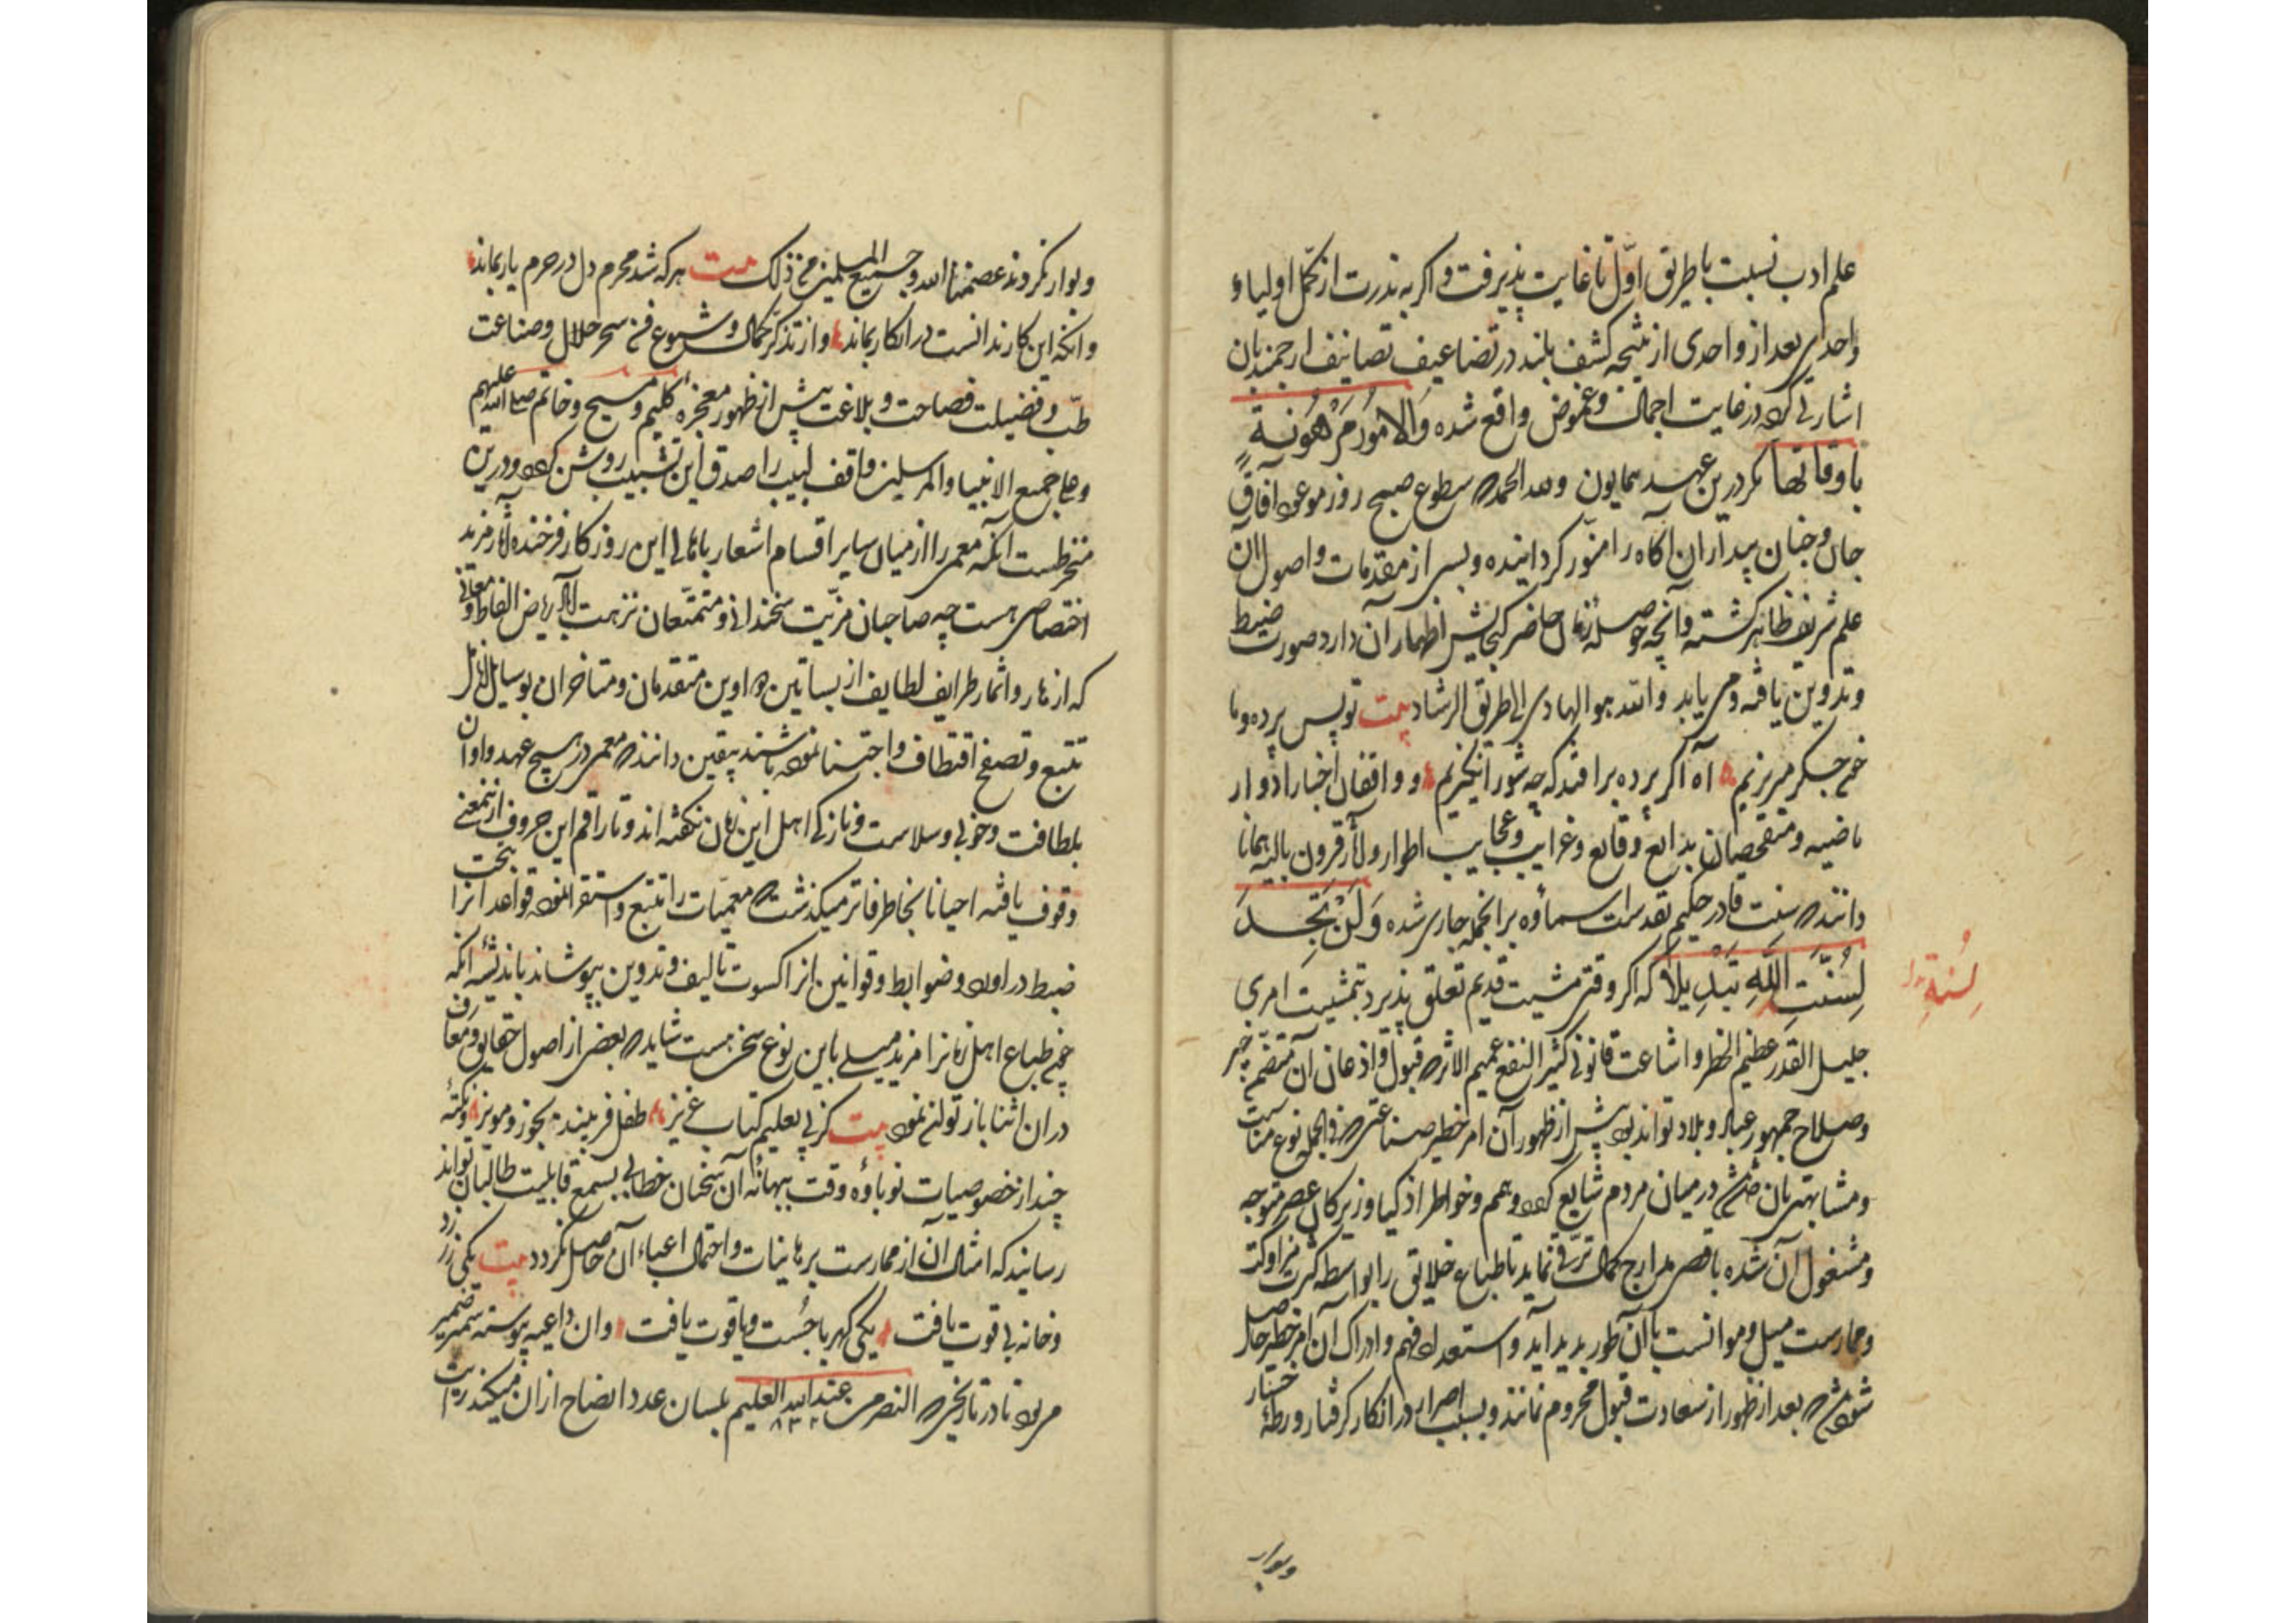 علم ادب نسبت با طریق اوّل تا غایت پذیرفت و اگر به ندرت از کمّل اولیاء
واحدی بعد از واحدی از نتیجه کشف بلند در تضاعیف تصانیف ارجمند بان
اشارتی کرده در غایت اجمال و غموض واقع شده وَالامُورُ مَرْهُونَةٌ
باوقاتها مگر درین عهد همایون ولله الحمد که سطوع صبح روز موعود آفاق
جان و جنان بیداران آکاه را منوّر کردانیده و بسی از مقدمات و اصول آن
علم شریف ظاهر کشته و آنچه حوصله زمان حاضر کنجایش اظهار آن دارد صورت ضبط
و تدوین یافته و می یابد والله هو الهادی الی طریق الرشاد بیت تو پس پرده و ما
خون جکر میریزیم آه اکر پرده برافتد که چه شور انکیزیم و واقفان اخبار ادوار
ماضیه و متفحصان بدایع وقایع و غرایب و عجایب اطوار و آثار قرون بالیه همانا
دانند که سنت قادر حکیم تقدست اسماؤه بر آنجمله جاری شده وَلَنْ تَجِدَ
لِسُنَّتِ اللَّهِ تَبْدِيلاً که اکر وقتی مشیت قدیم تعلق پذیرد بتمشیت امری
لِسُنَّةِ
جلیل القدر عظیم الخطر و اشاعت قانونی کثیر النفع عمیم الاثر که قبول و اذعان آن متضمن خیر
و صلاح جمهور عباد و بلاد تواند بود پیش از ظهور آن امر خطیر صناعتی که فی الجمله نوع مناسبت
و مشابهتی بآن داشته در میان مردم شایع کردد و همم و خواطر اذکیا و زیرکان عصر متوجه
و مشغول آن شده باقصی مدارج کمال ترقّی نماید تا طباع خلایق را بواسطه کثرت مزاولت
و ممارست میل و موانست با آن طور پدید آید و استعداد فهم و ادراک آن امر خطیر حاصل
شود که بعد از ظهور از سعادت قبول محروم نمانند و بسبب اصرار در انکار کرفتار ورطهٔ خسار
و بوار
و بوار نکردند عصمنا الله و جمیع المسلمین من ذلک بیت هر که شد محرم دل در حرم یار بماند
وانکه این کار ندانست در انکار بماند و از تذکّر کمال و شیوع فن سحر حلال و صناعت
طبّ و فضیلت فصاحت و بلاغت پیش از ظهور معجزهٔ کلیم و مسیح و خاتم صلی الله علیهم
و علی جمیع الانبیا و المرسلین واقف لبیب را صدق این تشبیب روشن کردد و درین
منخرطست آنکه معمی را از میان سایر اقسام اشعار باهالی این روزکار فرخنده آثار مزید
اختصاصی هست چه صاحبان مزیّت سخندانی و متمتّعان نزهت ریاض الفاظ و معانی
که ازهار و اثمار طرایف لطایف از بساتین دواوین متقدمان و متاخران بوسایل
تتبع و تصفح اقتطاف و اجتنا نموده باشند بیقین دانند که معمی در هیچ عهد و اوان
بلطافت و خوبی و سلاست و نازکی اهل این زمان نکفته اند و تا راقم این حروف ازین معنی
وقوف یافته احیانا بخاطر فاتر میکذشت که معمیات را تتبع و استقرا نموده قواعد آنرا بتحت
ضبط درآورد و ضوابط و قوانین آنرا کسوت تالیف و تدوین بپوشاند باندیشهٔ آنکه
چون طباع اهل زمانرا مزید میلی باین نوع سخن هست شاید که بعضی از اصول حقایق و معارف
در آن اثنا باز توان نمود بیت کز پی تعلیم کتاب عزیز طفل فریبند بجوز و مویز و نکتهٔ
چند از خصوصیات نوباوهٔ وقت ببهانهٔ آن سخنان خطابی بسمع قابلیت طالبان تواند
رسانید که امثال آن از ممارست برهانیات و احتمال اعباء آن حاصل نکردد بیت یکی زر زرد
و خانه بی قوت یافت یکی کهربا جُست و یاقوت یافت وان داعیه پیوسته سمیر ضمیر
می بود تا در تاریخی که النصر من عند الله العلیم بلسان عدد ایضاح از آن میکند
۸۳۲